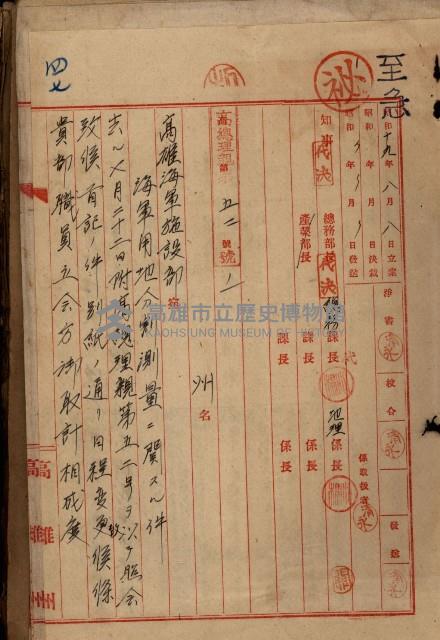 至急
秘
昭和十九年八月八日立案
昭和 年 月 日決裁
昭和 年 月 日發送
淨書
校合
發送
知事
代決
總務部長
代決
產業部長
總務課長
代
課長
課長
地理係長
係長
係長
係取扱者
高總理親第五二號ノ一
高雄海軍施設部 宛
州名
海軍用地分割測量ニ關スル件
去ル七月二十二日附高總理親第五二号ヲ以テ照会
致候首記ノ件別紙ノ通リ日程変更候條
貴部職員立会方御取計相成度
高雄州
四七
高雄市立歷史博物館
KAOHSIUNG MUSEUM OF HISTORY